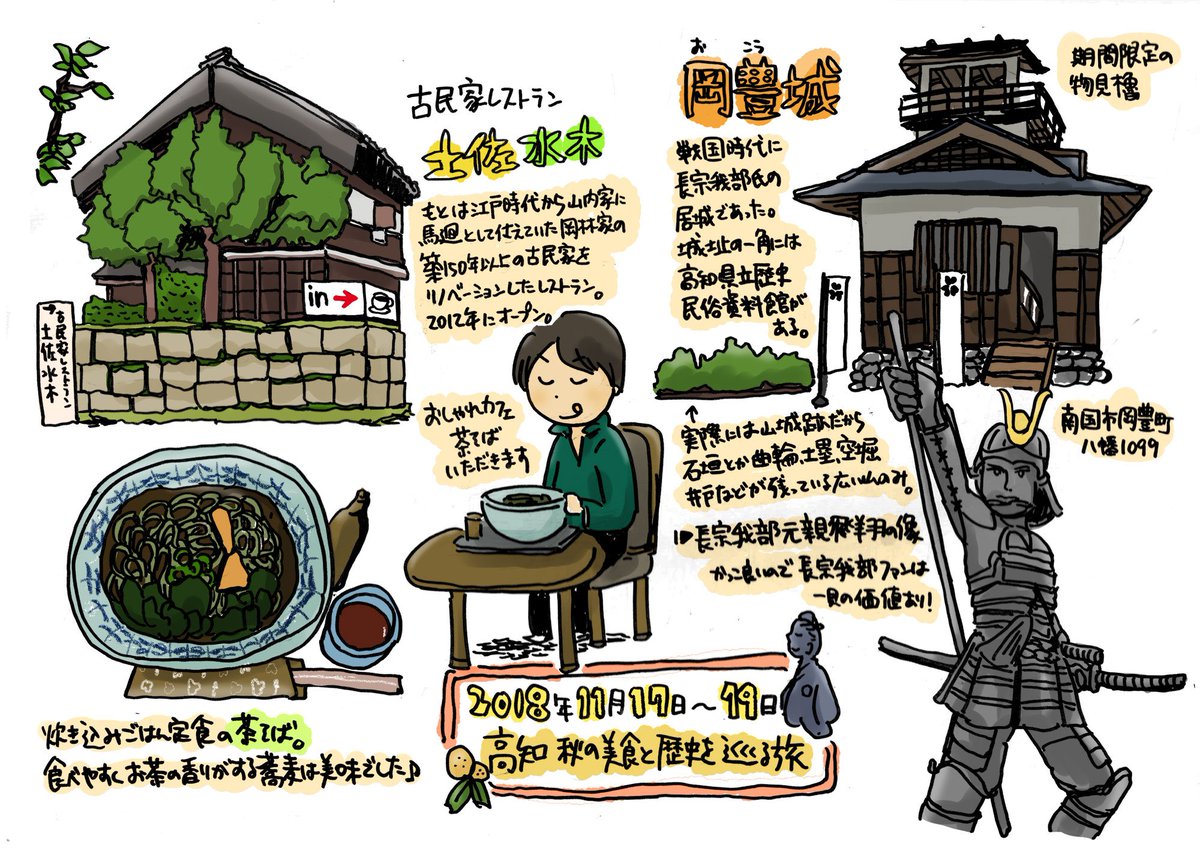 古民家レストラン
土佐水木
もとは江戸時代から山内家に
馬廻として仕えていた岡林家の
築150年以上の古民家を
リノベーションしたレストラン。
2012年にオープン。
in→
古民家レストラン
土佐水木
おしゃれカフェ
茶そば
いただきます
炊き込みごはん定食の茶そば。
食べやすくお茶の香りがする蕎麦は美味でした♪
おこう
岡豊城
戦国時代に
長宗我部氏の
居城であった。
城址の一角には
高知県立歴史
民俗資料館が
ある。
期間限定の
物見櫓
↑
実際には山城跡だから
石垣とか曲輪、土塁、空堀
井戸などが残っている広い山のみ。
南国市岡豊町
八幡1099
長宗我部元親飛翔の像
かっこ良いので長宗我部ファンは
一見の価値あり!
2018年11月17日〜19日
高知 秋の美食と歴史を巡る旅